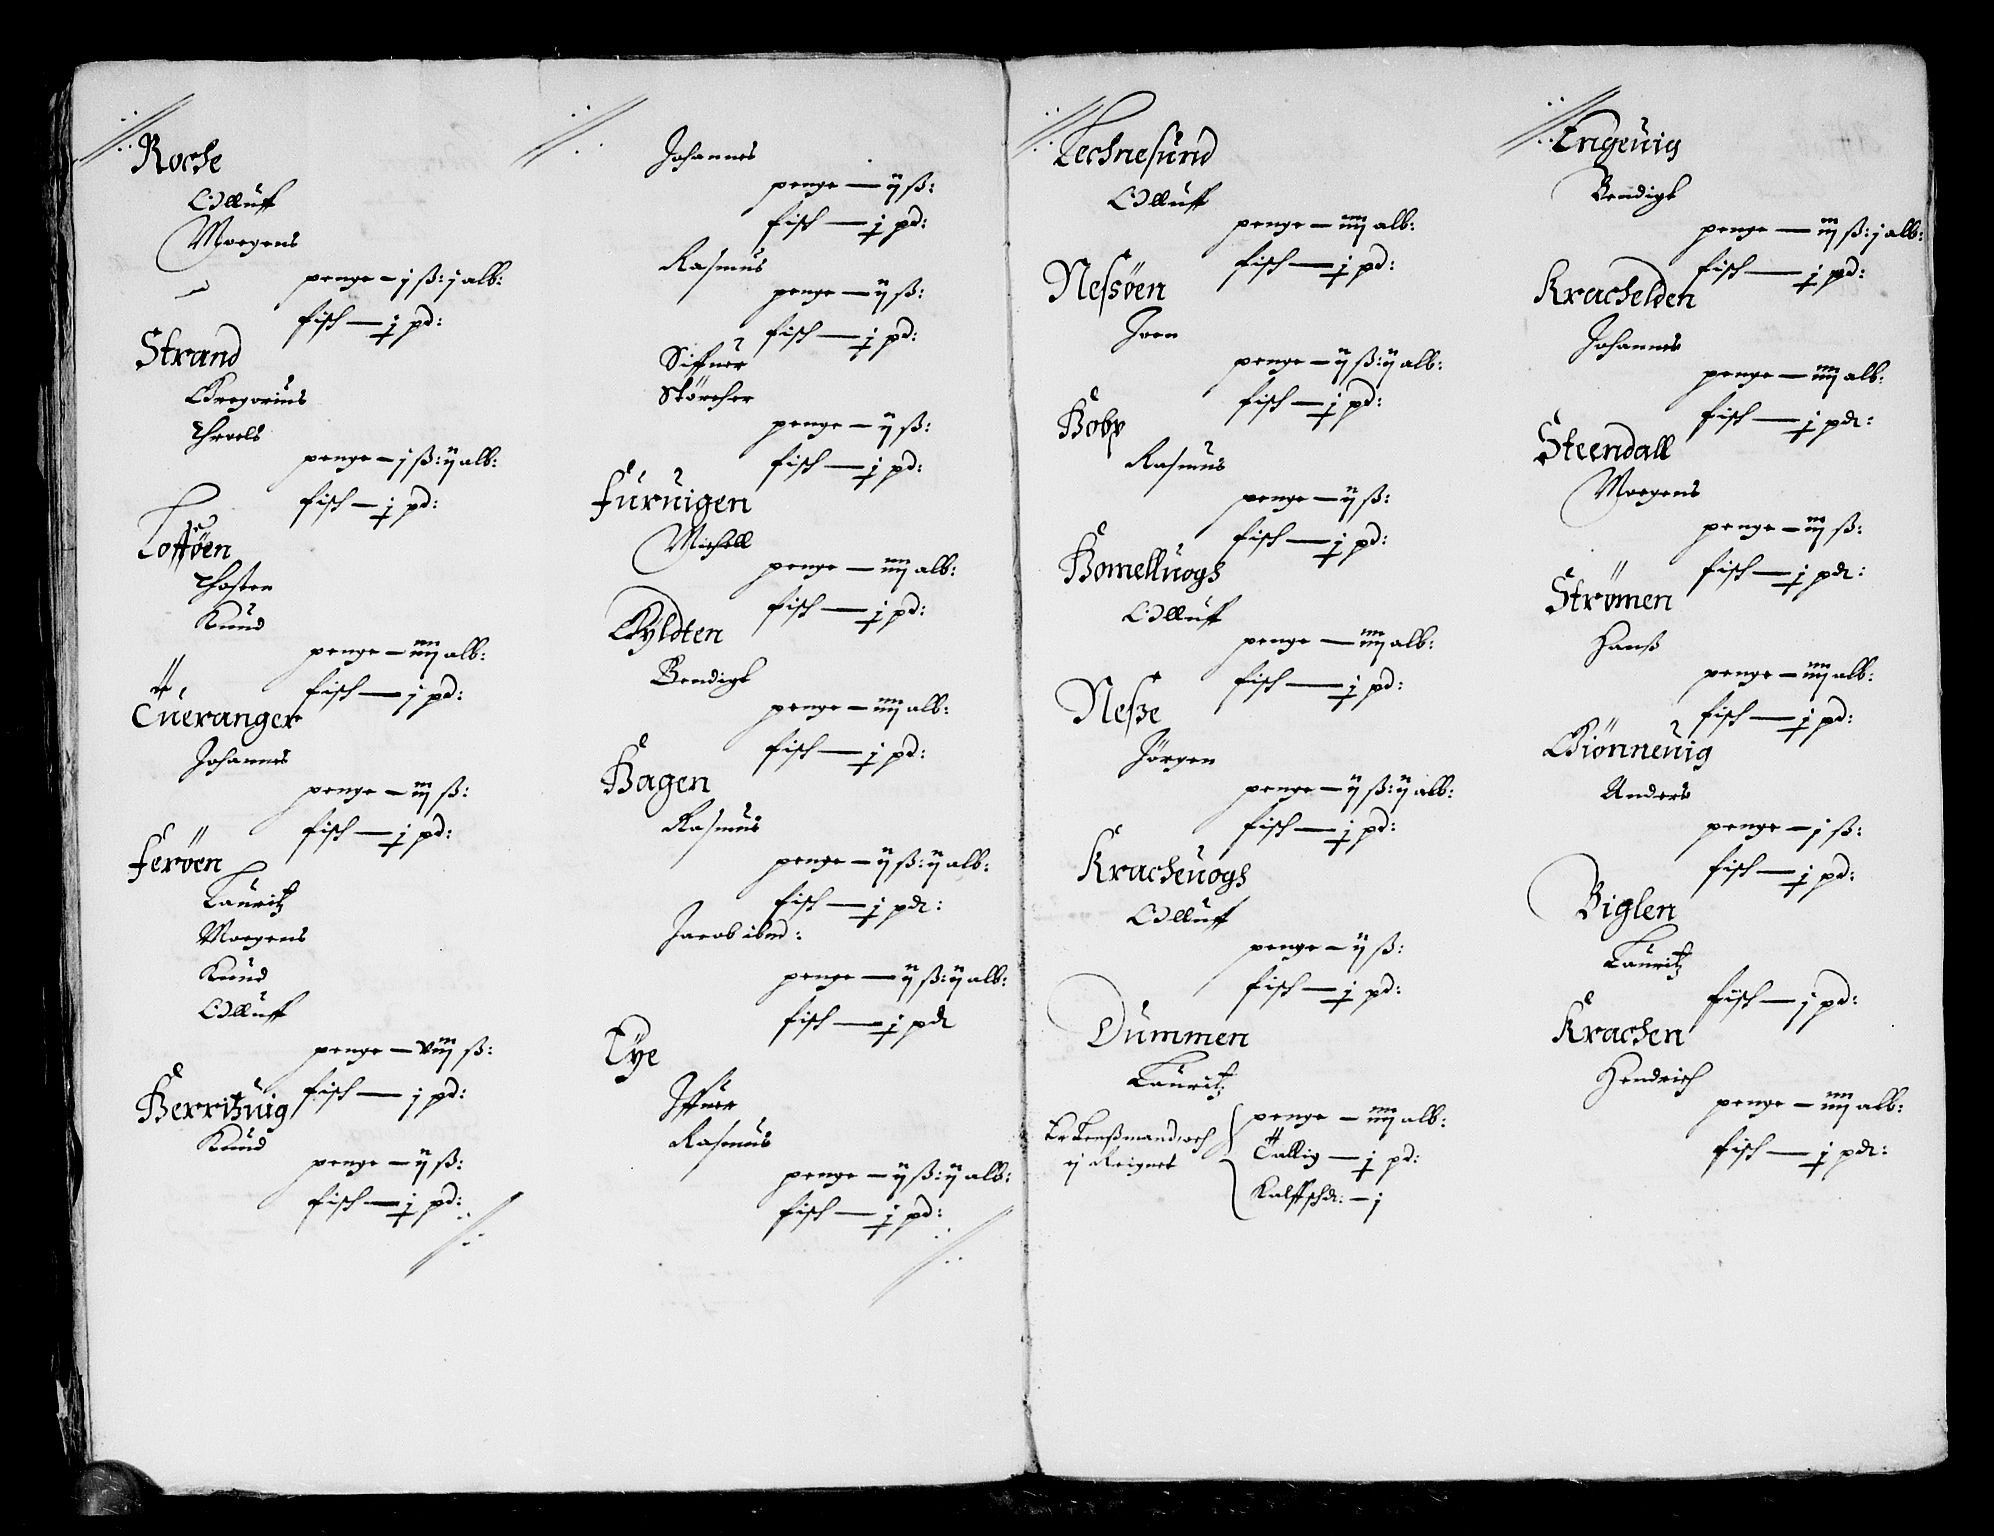 Roche
Olluff
Moegens
penge – j ß: j alb:
fisch — j pd:
Strand
Gregorius
Throels
penge – j ß: ij alb:
fisch — j pd:
Lofføen
Thosten
Knud
penge – iiij alb:
fisch — j pd:
Tüeranger
Johannes
penge – iij ß:
fisch — j pd:
Ferøen
Lauritz
Moegens
Knud
Olluff
penge – viij ß:
fisch — j pd:
Berritzuig
Knud
penge – ij ß:
fisch — j pd:
Johannes
penge — ij ß:
fisch — j pd:
Rasmus
penge — ij ß:
fisch — j pd:
Siffuer
Störcher
penge – ij ß:
fisch — j pd:
Furuigen
Michell
penge – iiij alb:
fisch — j pd:
Gyldten
Bendigt
penge – iiij alb:
fisch — j pd:
Bagen
Rasmus
penge – ij ß: ij alb:
fisch — j pd:
Jacob ibm:
penge — ij ß: ij alb:
fisch — j pd
Tye
Iffuer
Rasmus
penge – ij ß: ij alb:
fisch — j pd:
Technesund
Olluff
penge – iiij alb:
fisch — j pd:
Nessøen
Joen
penge – ij ß: ij alb:
fisch — j pd:
Boby
Rasmus
penge – ij ß:
fisch — j pd:
Bomelluogs
Olluff
penge — iiij alb:
fisch — j pd:
Nesse
Jörgen
penge – ij ß: ij alb:
fisch — j pd:
Kracheuogs
Olluff
penge – ij ß:
fisch — j pd:
Dummen
Lauritz
penge – iiij alb:
Tallig — j pd:
Kalffschd: – j
Engeuig
Bendigt
penge — iij ß: j alb:
fisch — j pd:
Krachelden
Johannes
penge — iiij alb:
fisch — j pd:
Steendall
Moegens
penge – iij ß:
fisch — j pd:
Strømen
Hanß
penge – iiij alb:
fisch — j pd:
Giönneuig
Anders
penge – j ß:
fisch — j pd:
Biglen
Lauritz
fisch — j pd:
Krachen
Hendrich
penge – iiij alb:
fisch — j pd: